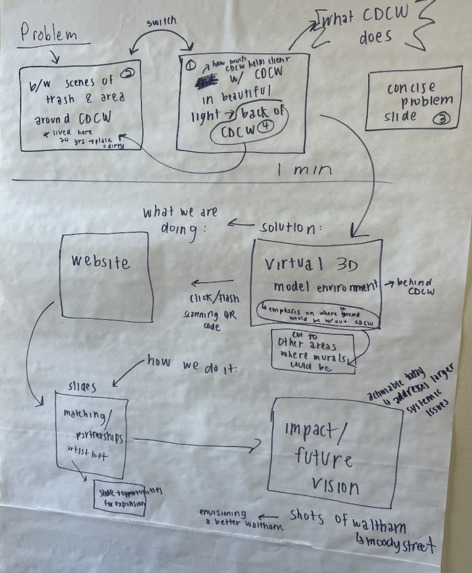 Problem
switch
what CDCW
does
b/w scenes of ②
trash & area
around CDCW
* lived here
20 yrs → place
dirty
① → how much
CDCW helps client
w/ CDCW
in beautiful
light → back of
CDCW ④
concise
problem
slide ③
1 min
what we are
doing:
← solution:
website
click/flash
scanning QR
code
virtual 3D
model environment
→ behind
CDCW
↳ emphasis on where
would be w/out CDCW
cut to
other areas
where murals
could be
how we do it:
slides
matching/
partnerships
artist
opportunities
for expansion
impact/
future
vision
actionable today
↳ addresses larger
systemic
issues
envisioning
a better waltham
← shots of waltham
↳ moody street